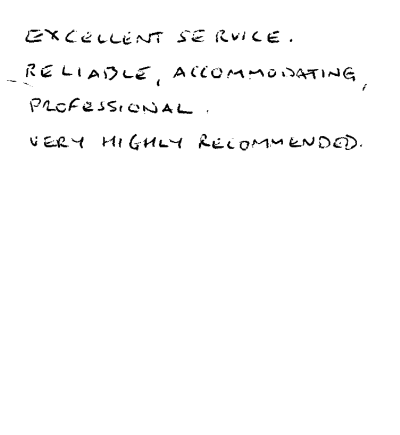 EXCELLENT SERVICE.
RELIABLE, ACCOMMODATING,
PROFESSIONAL.
VERY HIGHLY RECOMMENDED.